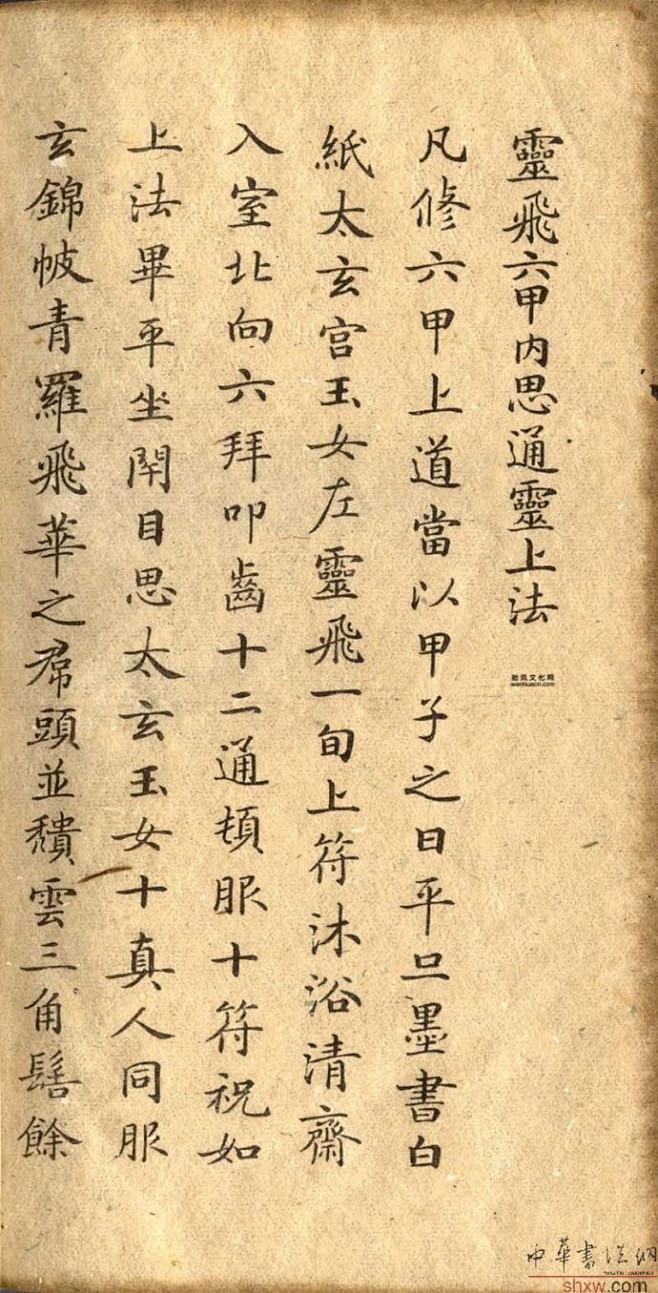 靈飛六甲內思通靈上法
凡修六甲上道當以甲子之日平旦墨書白
紙太玄宮玉女左靈飛一旬上符沐浴清齋
入室北向六拜叩齒十二通頓服十符祝如
上法畢平坐閇目思太玄玉女十真人同服
玄錦帔青羅飛華之帬頭並穨雲三角髻餘
wenhuacn.com
中華書法網
shxw.com